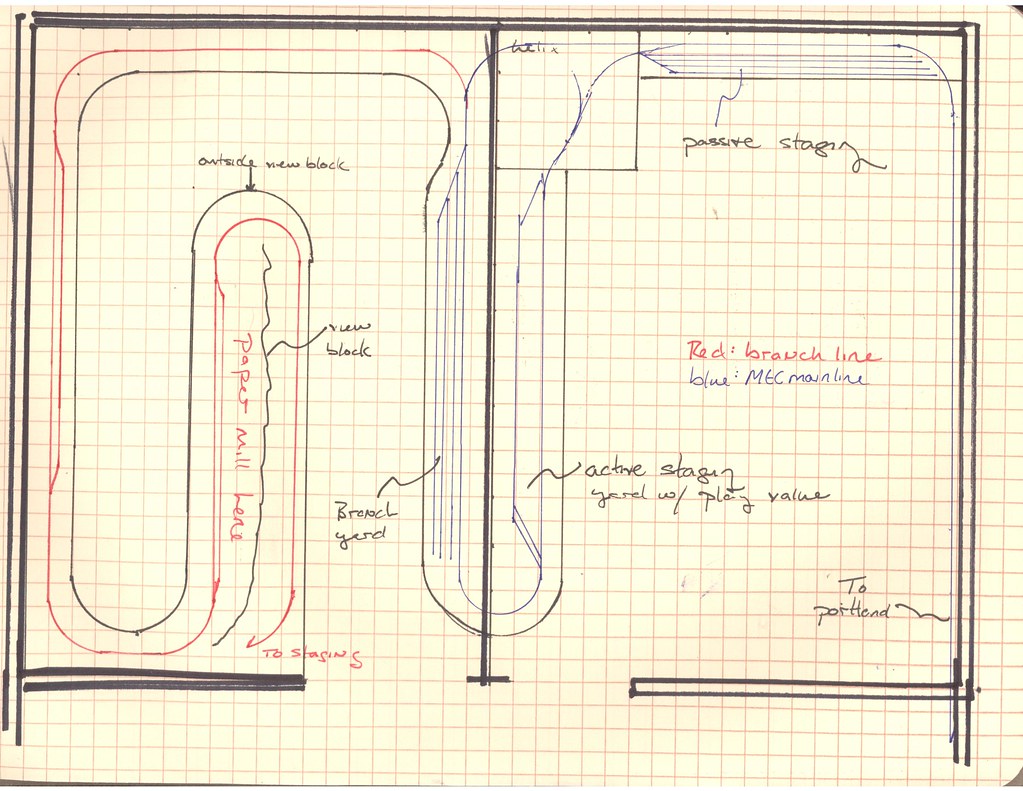 helix
passive staging
outside view block
view
block
paper mill here
Red: branch line
blue: MEC mainline
active staging
yard w/ play value
Branch
yard
To
portland
To staging